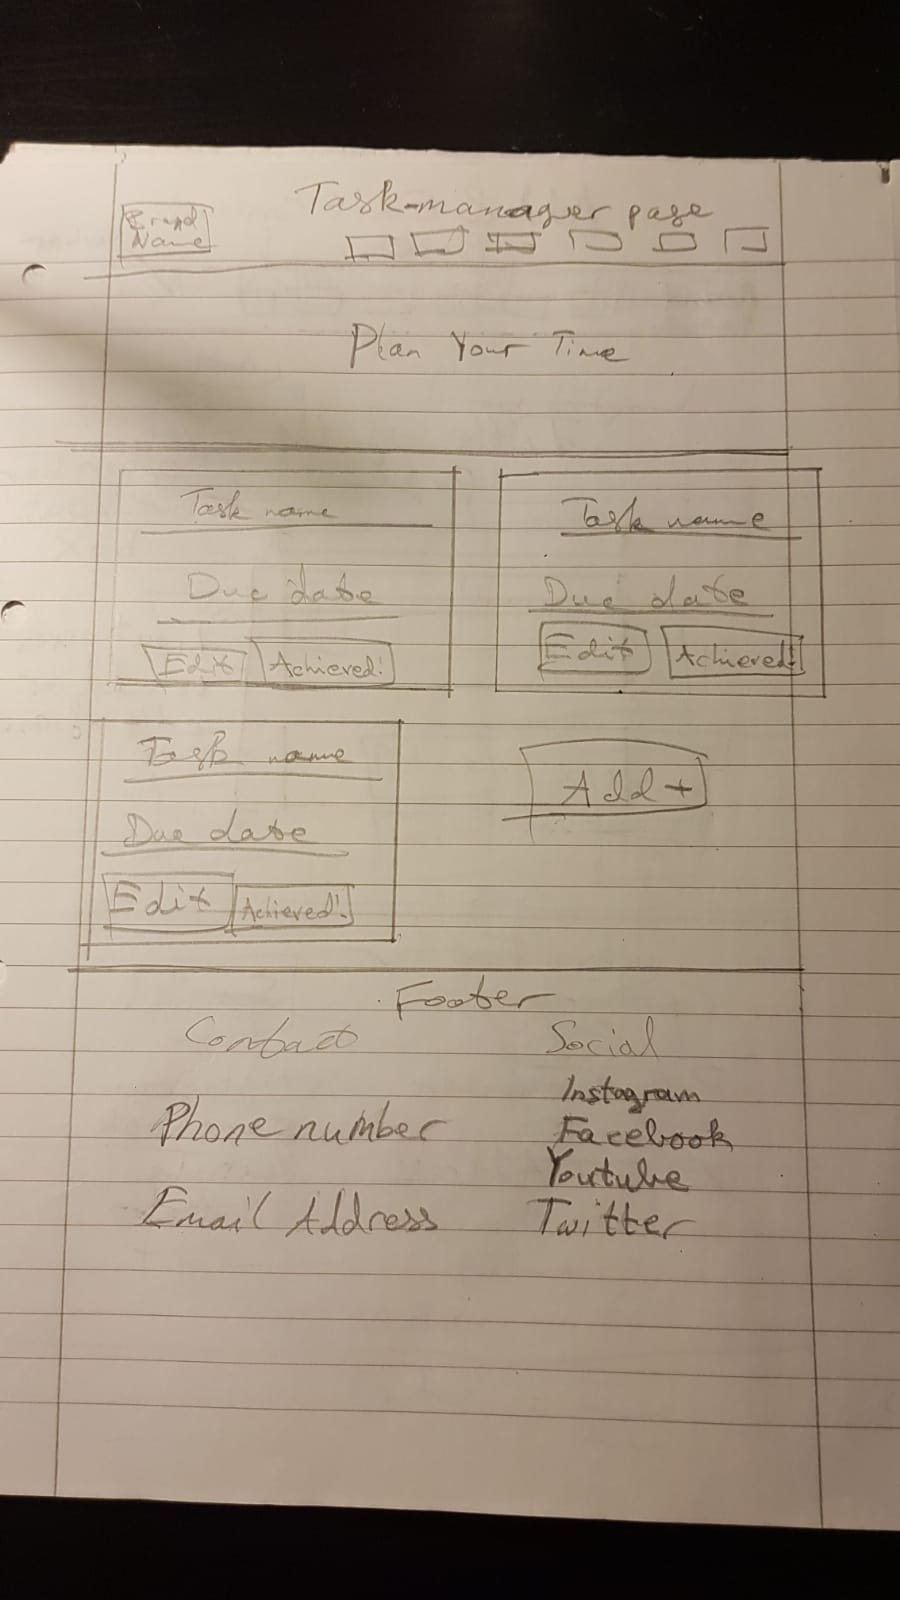 Task-manager page
Brand
Name
Plan Your Time
Task name
Due date
Edit
Achieved!
Task name
Due date
Edit
Achieved!
Task name
Due date
Edit
Achieved!
Add +
Footer
Contact
Phone number
Email Address
Social
Instagram
Facebook
Youtube
Twitter